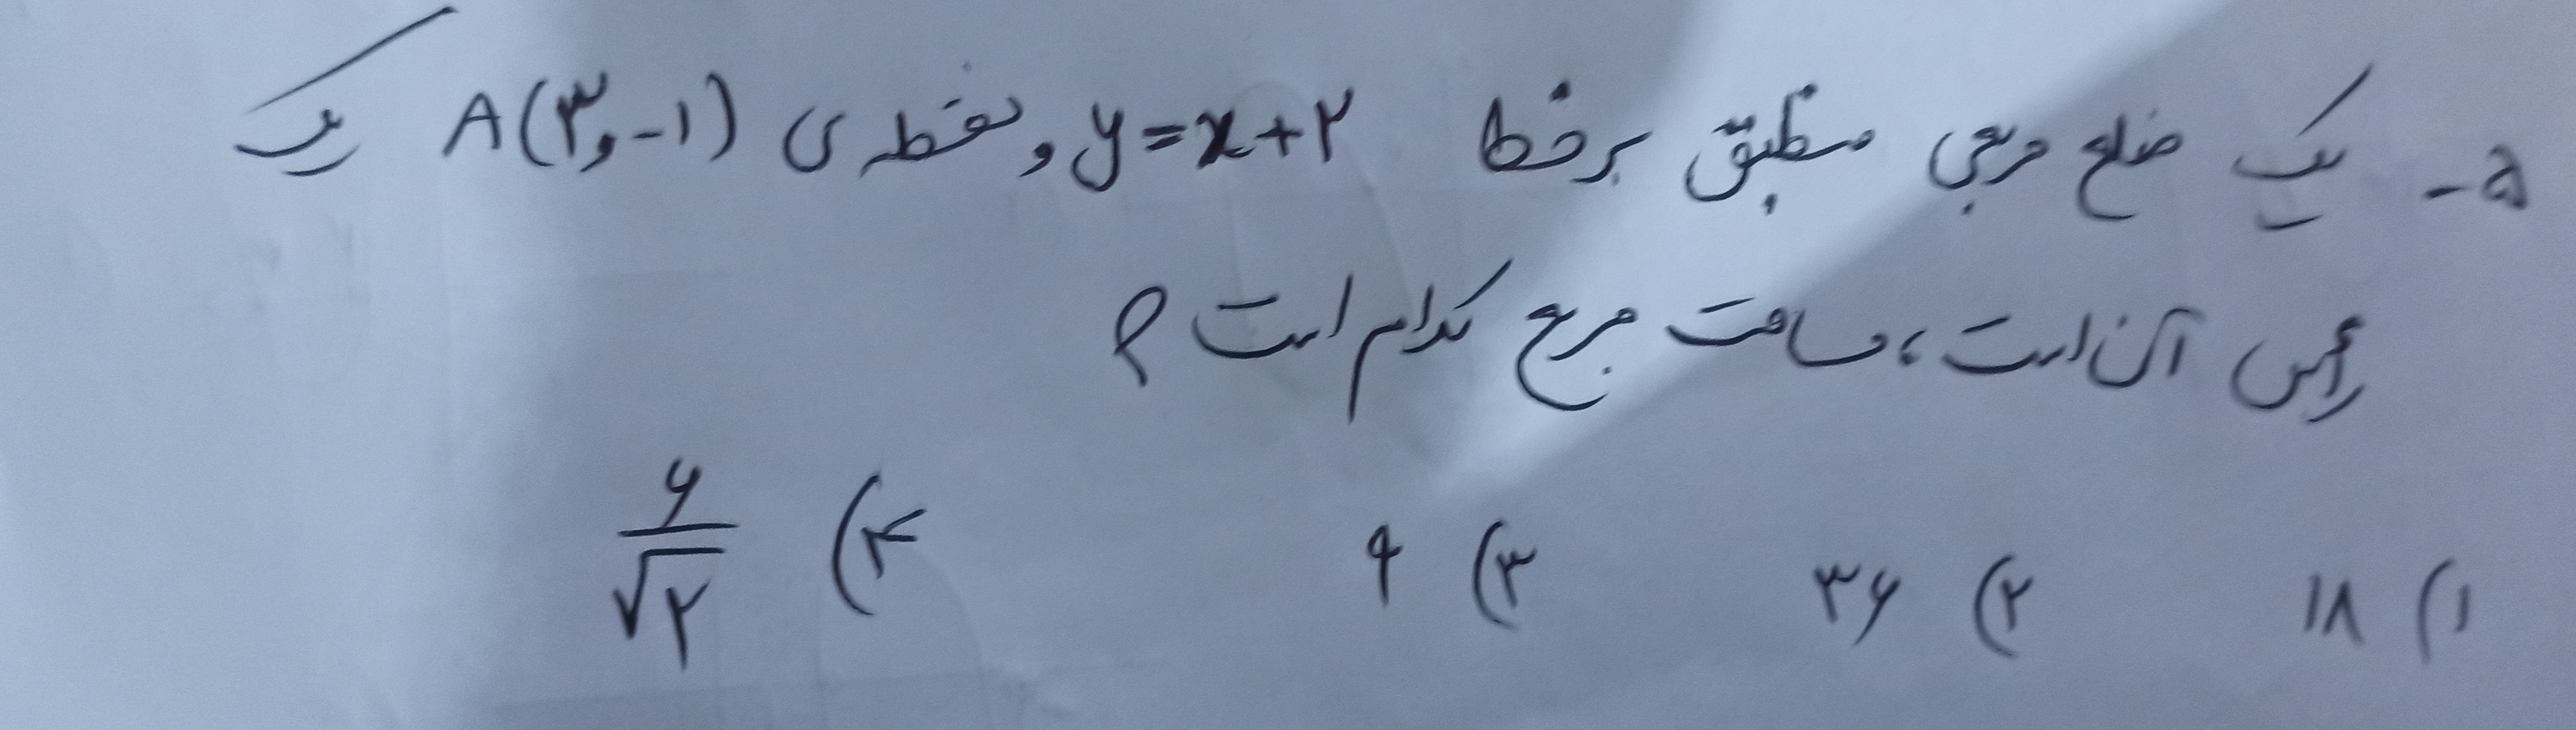 ۵- یک ضلع مربعی منطبق بر خط y=x+۲ و نقطه ی A(۳,-۱) یک
رأس آن است، مساحت مربع کدام است؟
۱) ۱۸ ۲) ۳۶ ۳) ۹ ۴) ۶/√۲